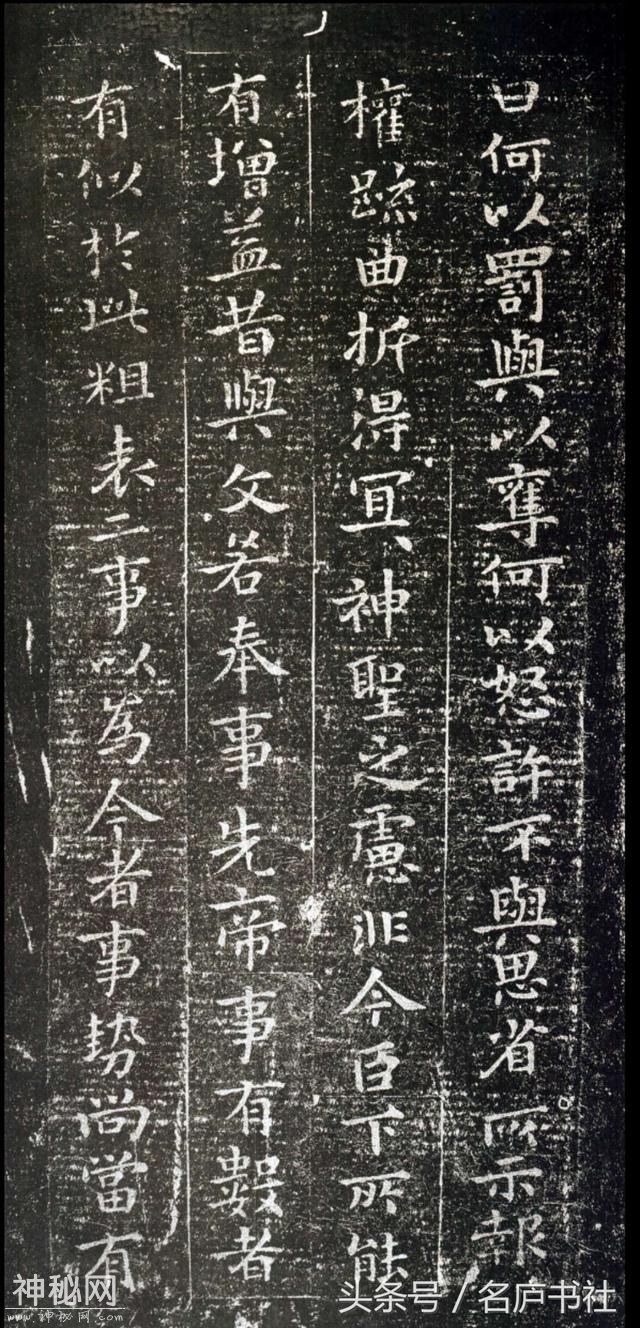 曰何以罰與以奪何以怒許不與思省所示報
權疏曲折得宜神聖之慮非今臣下所能
有增益昔與文若奉事先帝事有數者
有似於此粗表二事以為今者事勢尚當有
神秘网
www.神秘网.com
头条号/名庐书社